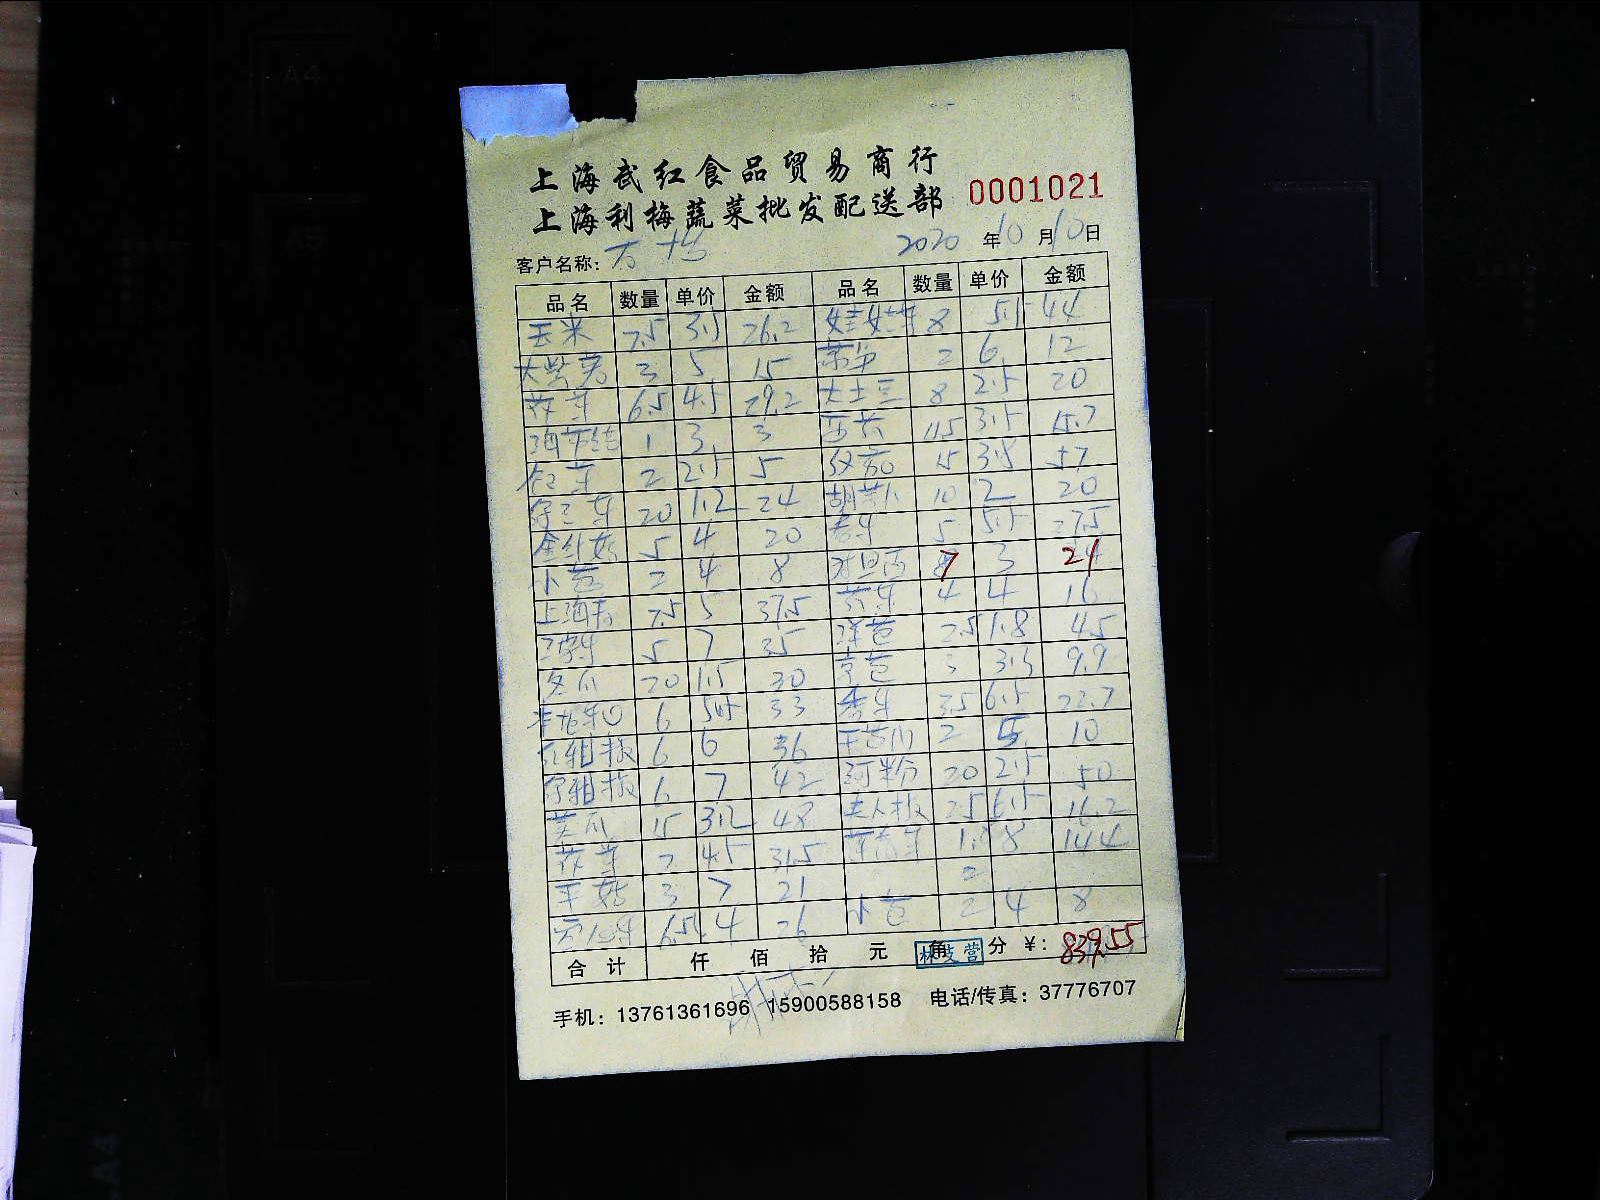 上海武红食品贸易商行
上海利梅蔬菜批发配送部 0001021
客户名称: 2020 年 10 月 10 日
品名 数量 单价 金额 品名 数量 单价 金额
玉米 7.5 3.5 26.2 娃娃菜 8 5.5 44
3 5 15 2 6 12
花菜 6.5 4.5 29.2 大土豆 8 2.5 20
1 3 3 西芹 3.5 15.7
2 2.5 5 15 3.8 57
20 1.2 24 10 2 20
金针菇 5 4 20 5 5.5 27.5
小葱 2 4 8 7 3 21
上海青 7.5 5 37.5 4 4 16
5 7 35 洋葱 2.5 1.8 4.5
冬瓜 20 1.5 30 京葱 3 3.3 9.9
6 5.5 33 3.5 6.5 22.7
红甜椒 6 6 36 2 5 10
6 7 42 河粉 20 2.5 50
黄瓜 15 3.2 48 美人椒 2.5 6.5 16.2
花菜 7 4.5 31.5 1.8 8 14.4
平菇 3 7 21 2
6.5 4 26 小葱 2 4 8
合计 仟 佰 拾 元 角 分 ¥: 839.55
手机: 13761361696 15900588158 电话/传真: 37776707